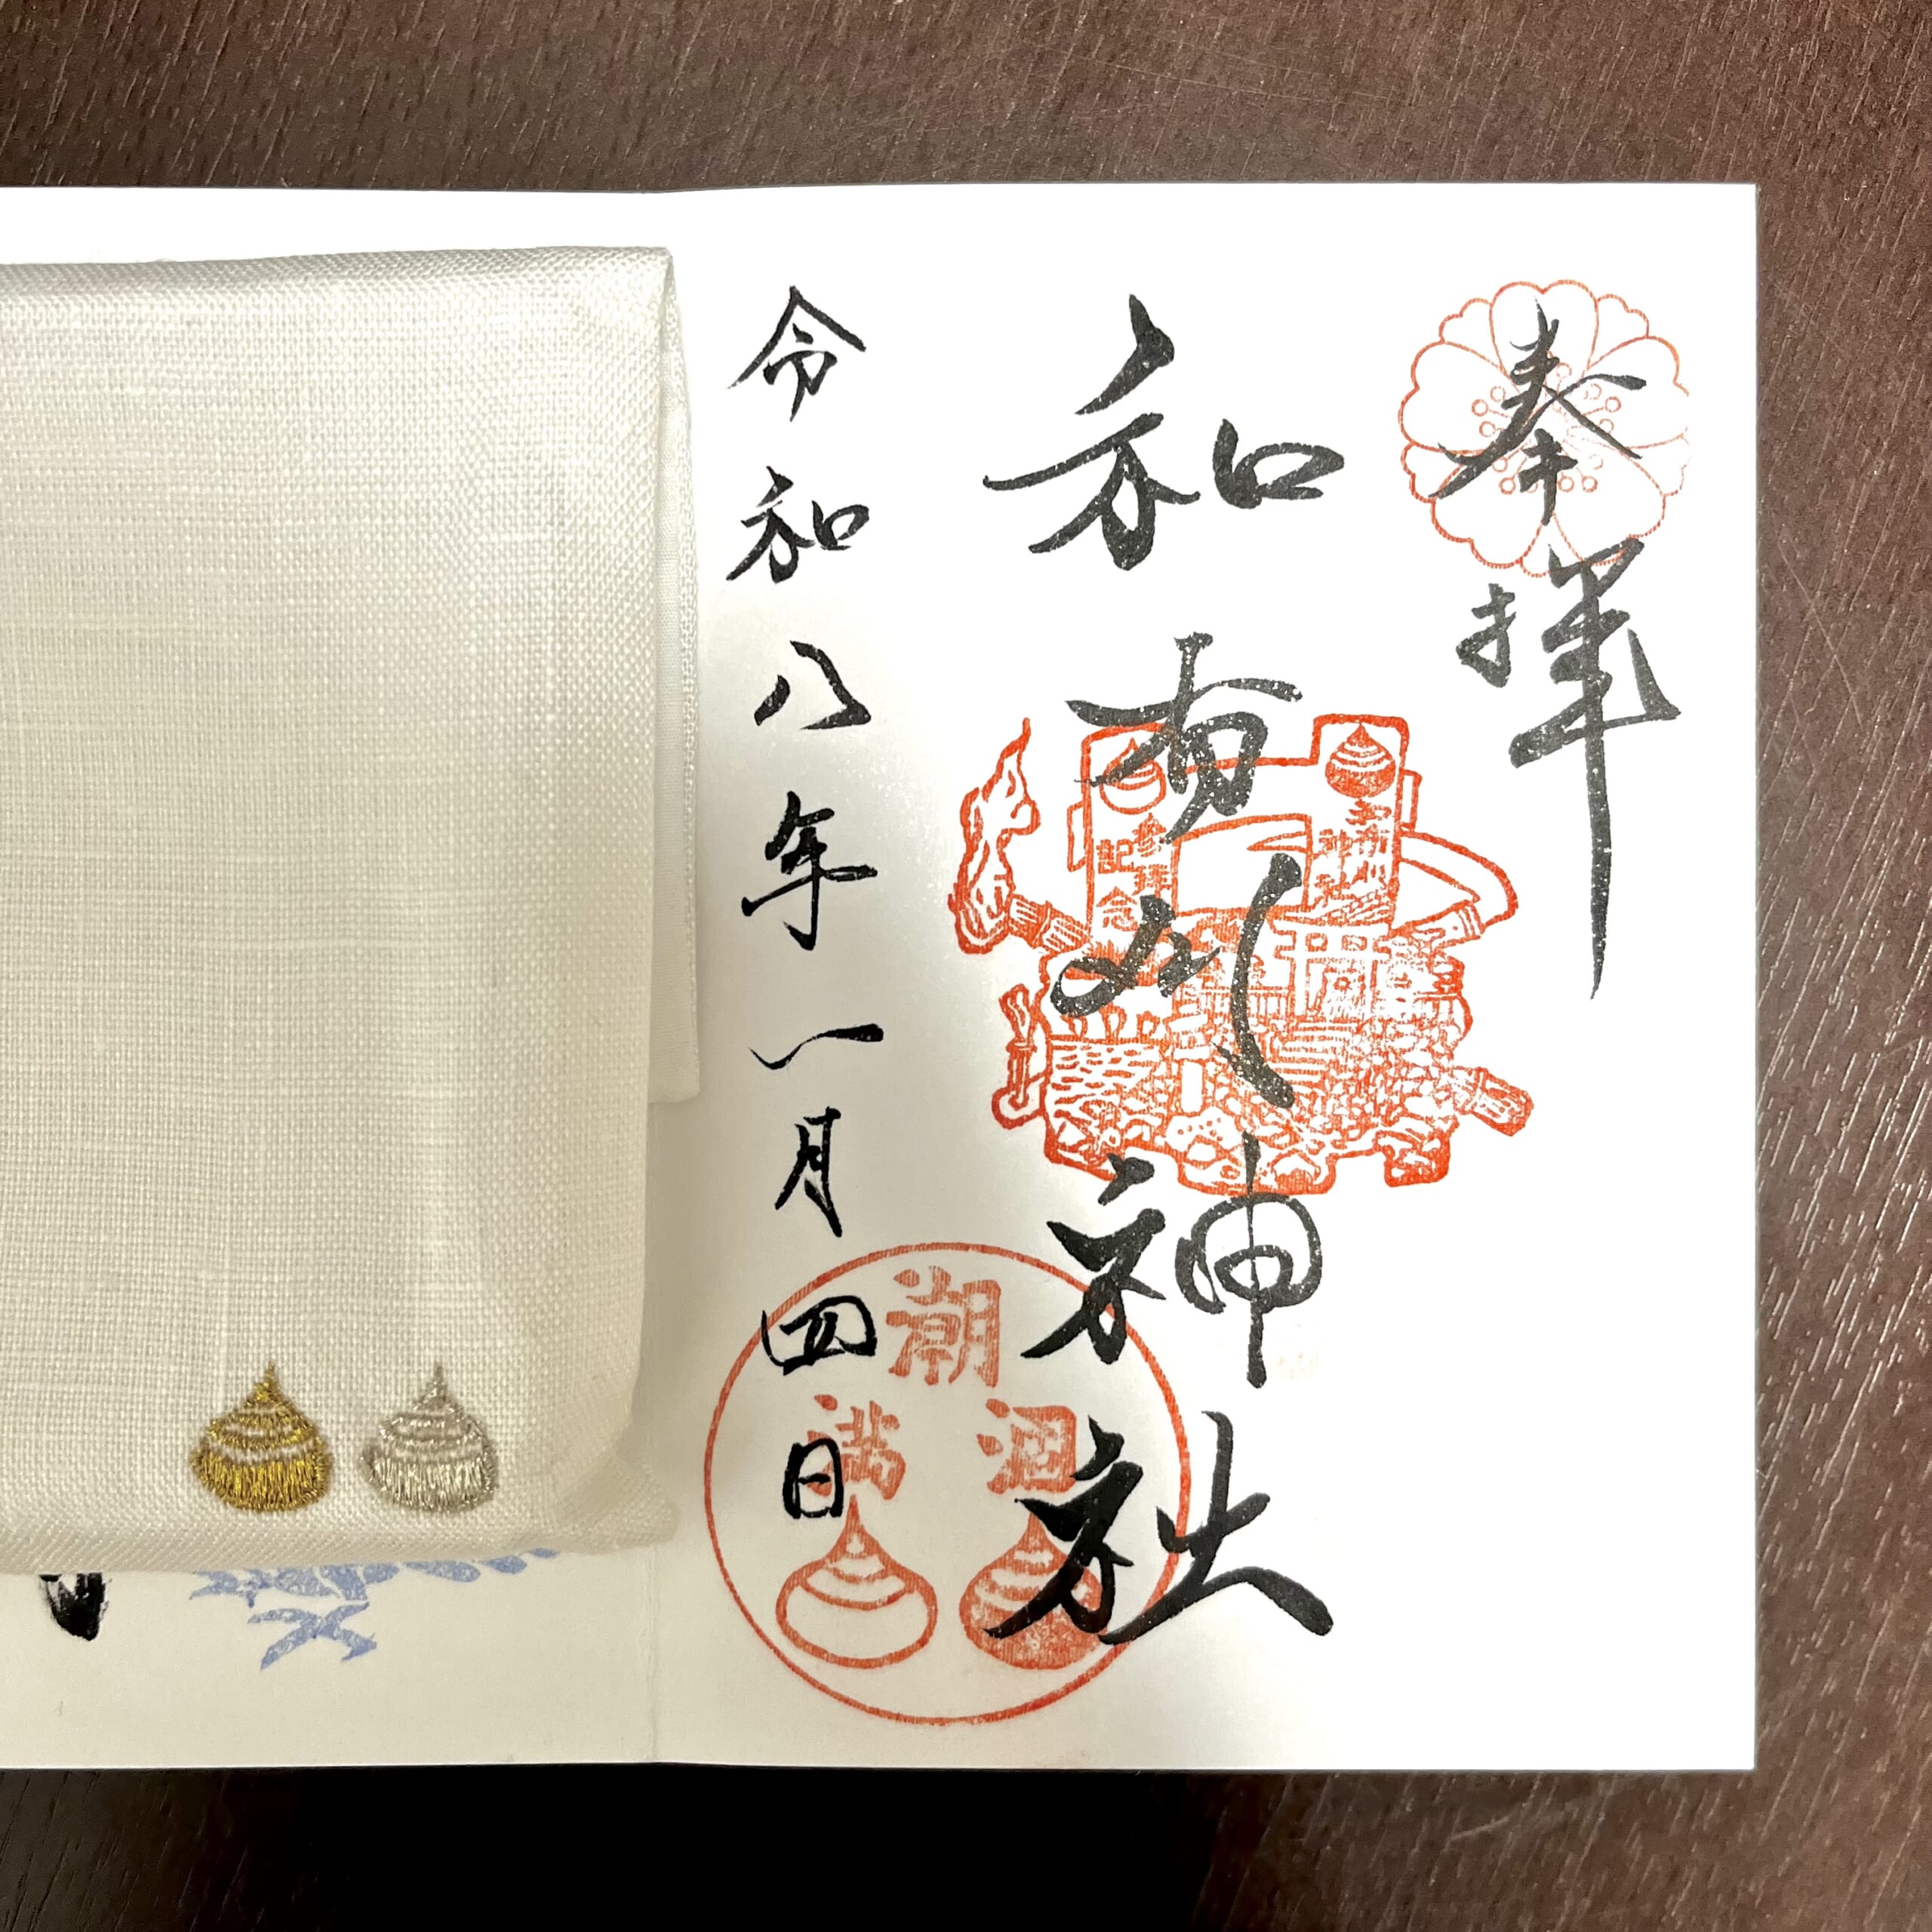 奉拝
和布刈神社
和布刈神社
参拝記念
潮
涸
満
令和八年一月四日